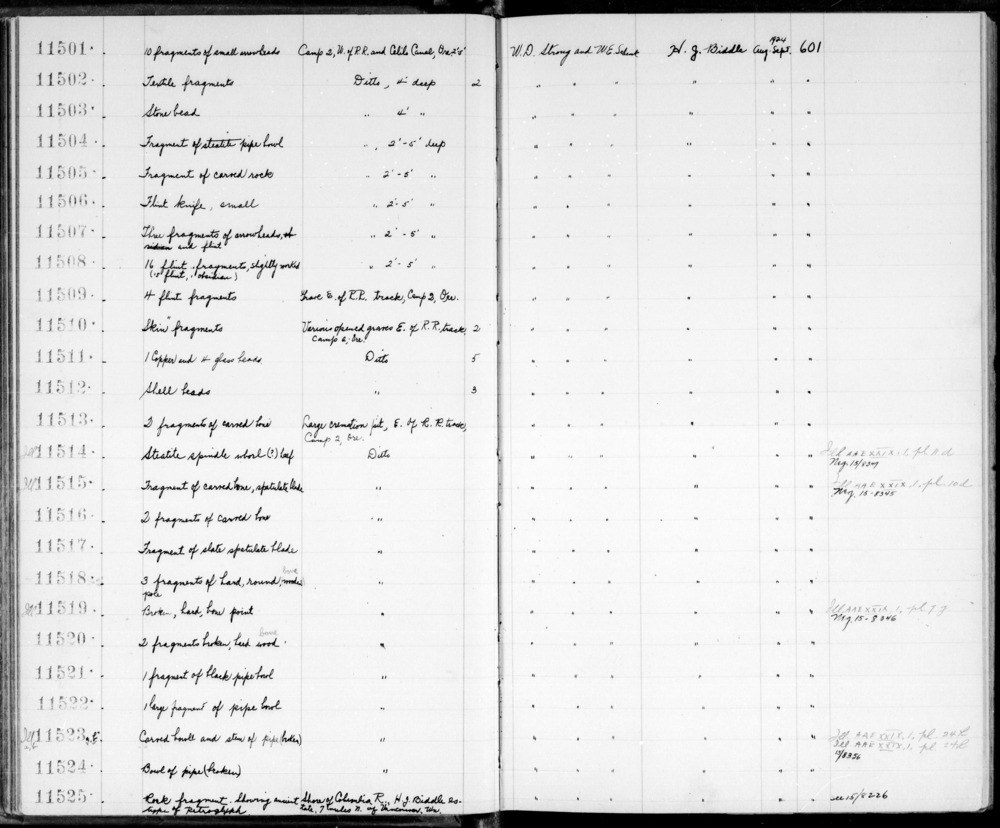 11501. 10 fragments of small arrowheads Camp 2, W. of R.R. and Celilo Canal, Ore. 2'-5' W.D. Strong and W.E. Schenk H. J. Biddle 1924 Aug-Sept. 601
11502. Textile fragments Ditto, 4' deep 2 " " " " " "
11503. Stone bead " 4' " " " " " " "
11504. Fragment of steatite pipe bowl ", 2'-5' deep " " " " " "
11505. Fragment of carved rock " 2'-5' " " " " " " "
11506. Flint knife, small " 2'-5' " " " " " " "
11507. Three fragments of arrowheads, ob-
sidian and flint " 2'-5' " " " " " " "
11508. 16 flint fragments, slightly worked
(15 flint, 1 obsidian) " 2'-5' " " " " " " "
11509. 4 flint fragments Grave E. of R.R. track, Camp 2, Ore. " " " " " "
11510. "Skin" fragments Various opened graves E. of R.R. track, 2 " " " " " "
Camp 2, Ore.
11511. 1 Copper and 4 glass beads Ditto 5 " " " " " "
11512. Shell beads " 3 " " " " " "
11513. 2 fragments of carved bone Large cremation pit, E. of R.R. track, " " " " " "
Camp 2, Ore.
11514. Steatite spindle whorl (?) half Ditto " " " " " " Ill AAE XXIX, 1, pl
Neg. 15/8327
Ill 11515. Fragment of carved bone, spatulate blade " " " " " " " Ill AAE XXIX, 1, pl. 10d
Neg. 15-8345
11516. 2 fragments of carved bone " " " " " " "
11517. Fragment of slate spatulate blade " " " " " " "
11518. 3 fragments of hard, round, wooden
pole " " " " " " "
Ill 11519. Broken, hard, bone point " " " " " " " Ill AAE XXIX, 1, pl 7 g
Neg. 15-8346
11520. 2 fragments broken, hard wood " " " " " " "
11521. 1 fragment of black pipe bowl " " " " " "
11522. 1 large fragment of pipe bowl " " " " " " "
Ill 11523 Carved bowl and stem of pipe (broken) " " " " " " " Ill AAE XXIX, 1, pl 24
Ill AAE XXIX, 1, pl 24
15/8356
11524. Bowl of pipe (broken) " " " " " " "
11525. Rock fragment. Showing ancient Shore of Columbia R., H. J. Biddle Es- " " " " " " See 15/8226
type of petroglyph tate, 7 miles N. of Vancouver, Wn.